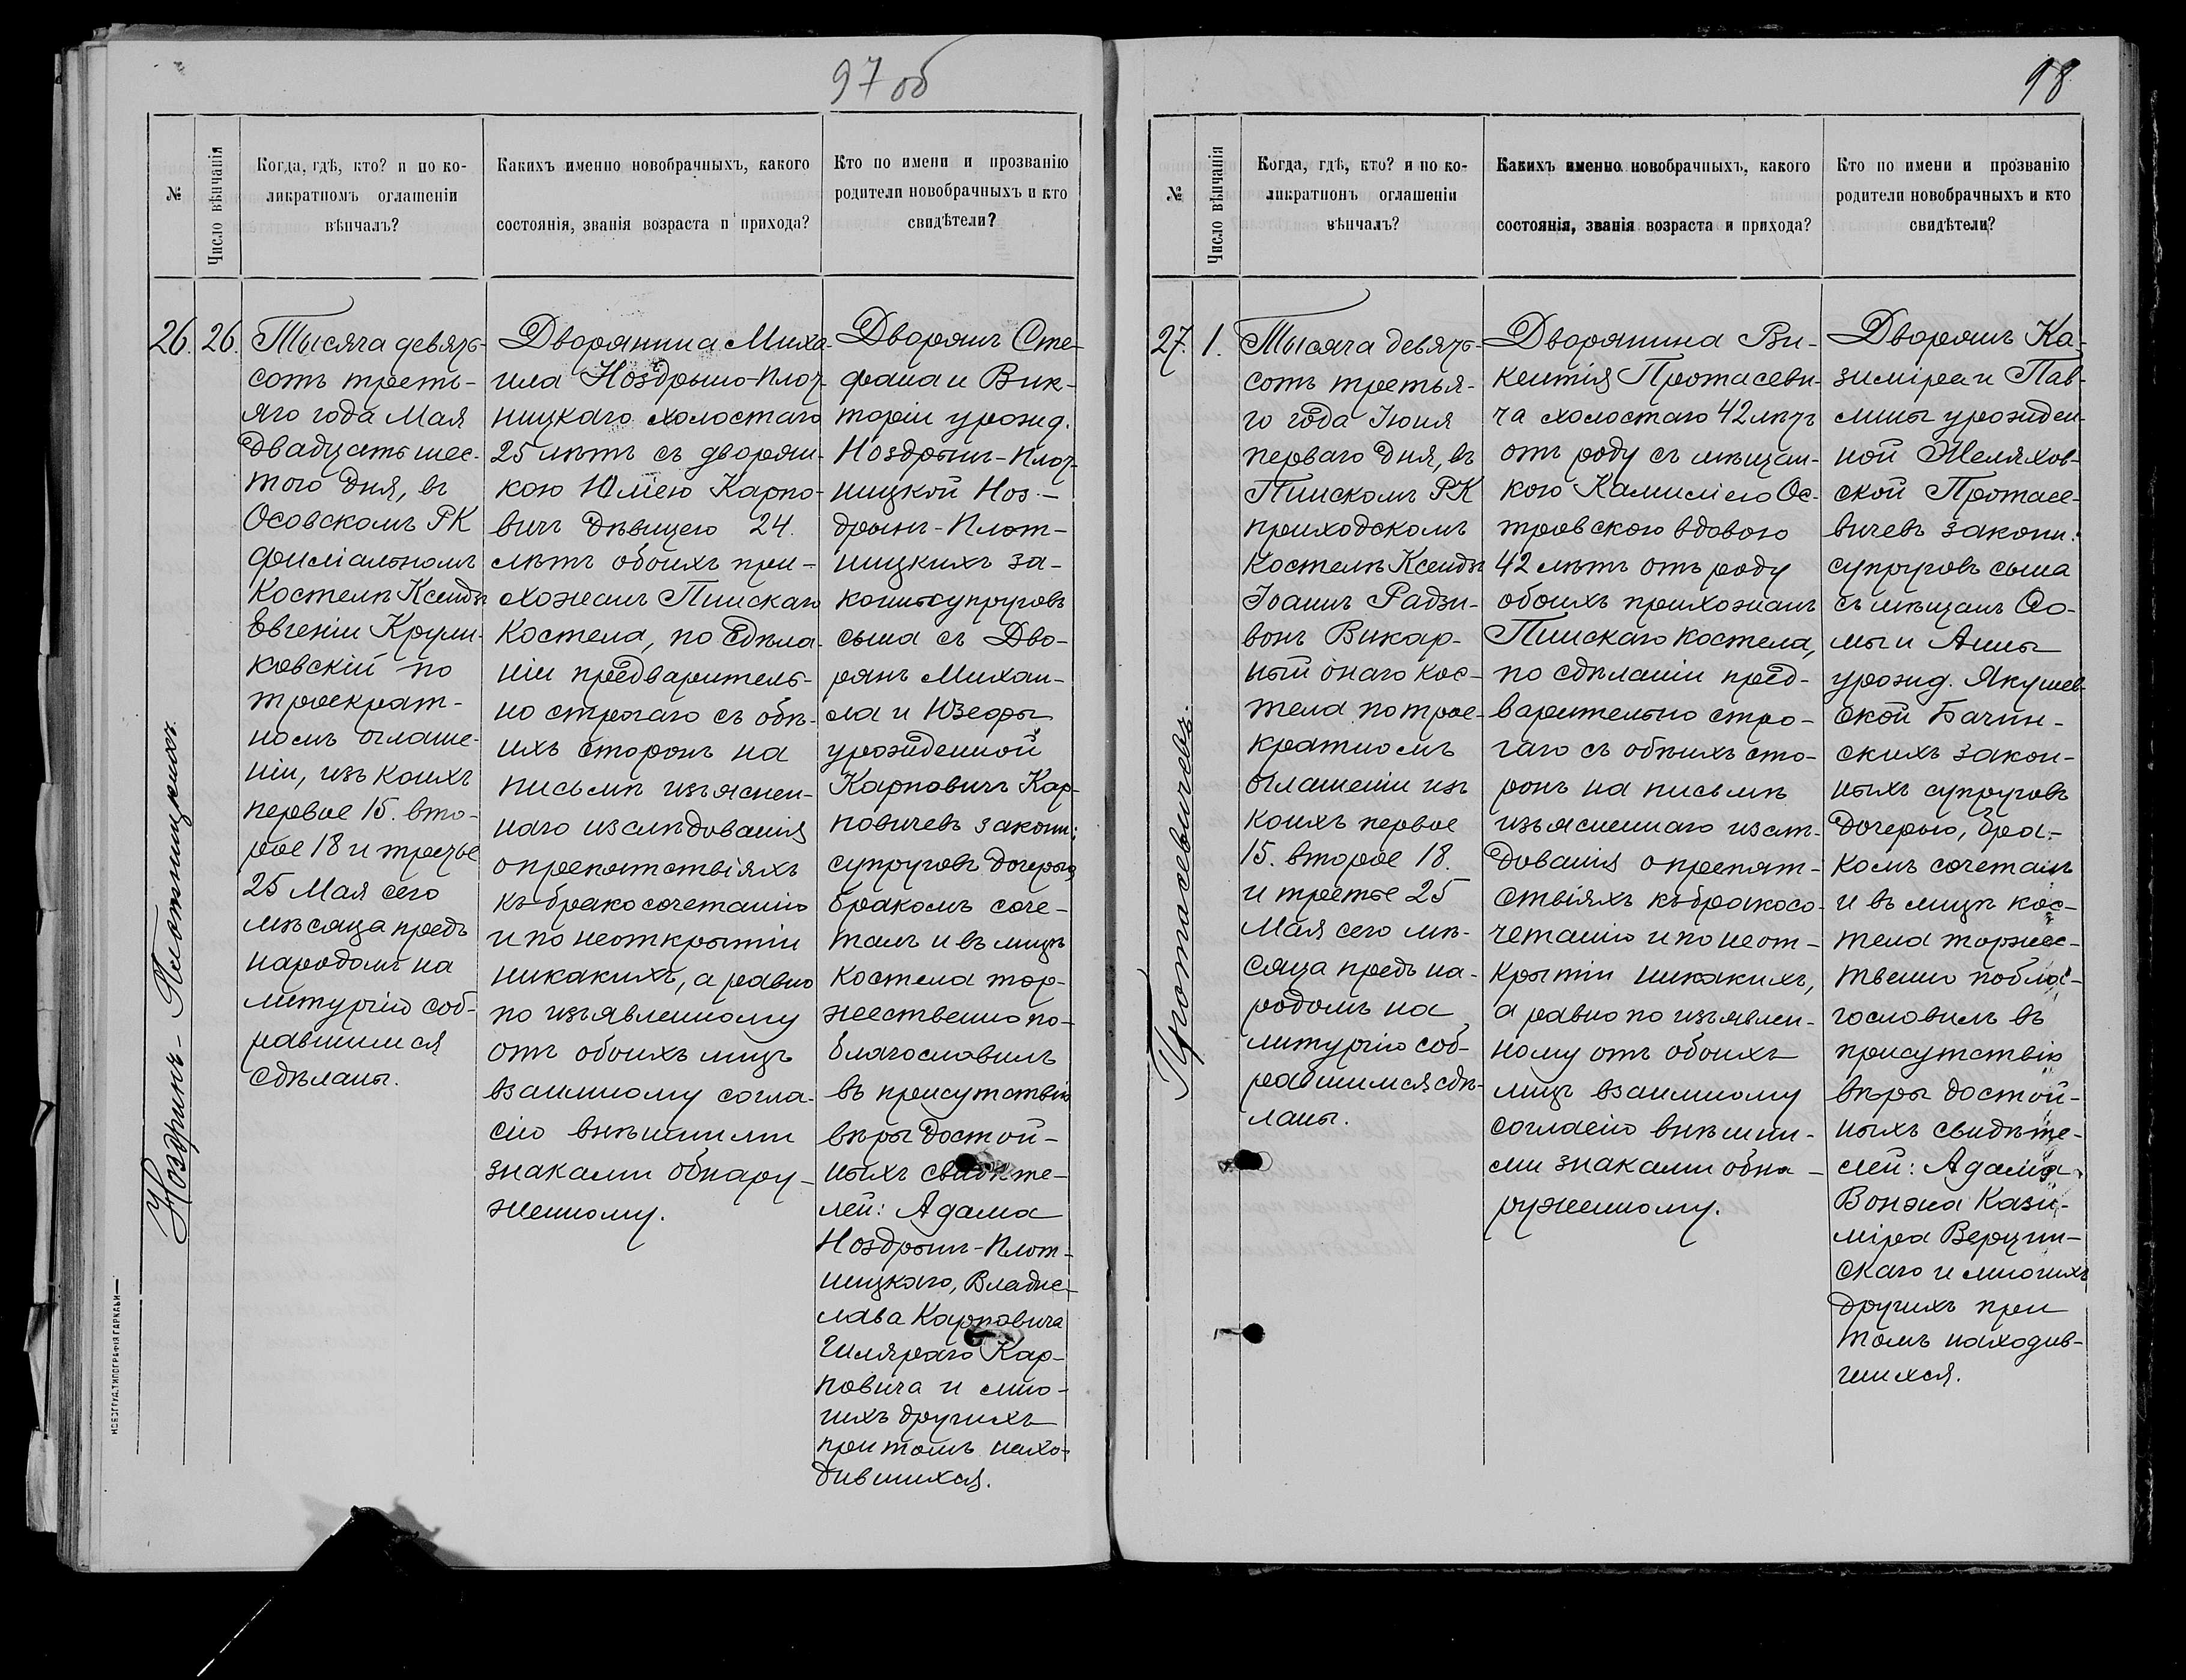 97 об
№
Число вѣнчанія
Когда, гдѣ, кто? и по ко-
ликратномъ оглашеніи
вѣнчалъ?
Какихъ именно новобрачныхъ, какого
состоянія, званія возраста и прихода?
Кто по имени и прозванію
родители новобрачныхъ и кто
свидѣтели?
Ноздринъ-Плотницкихъ.
26.
26.
Тысяча девять-
сотъ треть-
яго года Мая
двадцать шес-
того дня, въ
Осовскомъ РК
филіальномъ
Костелѣ Ксендзъ
Евгеній Круш-
ковскій по
троекрат-
номъ оглаше-
ніи, изъ коихъ
первое 15. вто-
рое 18 и третье
25 Мая сего
мѣсяца предъ
народомъ на
литургію соб-
равшимся
сдѣланы.
Дворянина Миха-
ила Ноздрынъ-Плот-
ницкаго холостаго
25 лѣтъ съ дворян-
кою Юліею Карпо-
вичъ дѣвицею 24.
лѣтъ обоихъ при-
хожанъ Пинскаго
Костела, по сдѣла-
ніи предваритель-
но строгаго съ обѣ-
ихъ сторонъ на
письмѣ изъяснен-
наго изслѣдованія
о препятствіяхъ
къ бракосочетанію
и по неоткрытіи
никакихъ, а равно
по изъявленному
отъ обоихъ лицъ
взаимному согла-
сію внѣшними
знаками обнару-
женному.
Дворянъ Сте-
фана и Вик-
торіи урожд.
Ноздрынъ-Плот-
ницкой Ноз-
дрынъ-Плот-
ницкихъ за-
кон. супруговъ
сына съ Дво-
рянъ Михаи-
ла и Юзефы
урожденной
Карповичъ Кар-
повичевъ законн:
супруговъ дочерью,
бракомъ соче-
талъ и въ лицѣ
Костела тор-
жественно по-
благословилъ
въ присутствіи
вѣры достой-
ныхъ свидѣте-
лей: Адама
Ноздрынъ-Плот-
ницкаго, Владис-
лава Карповича
Гиляраго Кар-
повича и мно-
гихъ другихъ
при томъ нахо-
дившихся.
НОВОГРУД. ТИПОГРАФІЯ ГАРКАВИ
98
№
Число вѣнчанія
Когда, гдѣ, кто? и по ко-
ликратномъ оглашеніи
вѣнчалъ?
Какихъ именно новобрачныхъ, какого
состоянія, званія возраста и прихода?
Кто по имени и прозванію
родители новобрачныхъ и кто
свидѣтели?
Протасевичевъ.
27.
1.
Тысяча девять-
сотъ третья-
го года Іюня
перваго дня, въ
Пинскомъ РК
приходскомъ
Костелѣ Ксендзъ
Іоаннъ Радзи-
вонъ Викар-
ный онаго кос-
тела по трое-
кратномъ
оглашеніи изъ
коихъ первое
15. второе 18.
и третье 25
Мая сего мѣ-
сяца предъ на-
родомъ на
литургію соб-
равшимся сдѣ-
ланы.
Дворянина Ви-
кентія Протасеви-
ча холостаго 42 лѣтъ
отъ роду съ мѣщан-
кою Камиліею Ос-
тровскою вдовою
42 лѣтъ отъ роду
обоихъ прихожанъ
Пинскаго костела,
по сдѣланіи пред-
варительно стро-
гаго съ обѣихъ сто-
ронъ на письмѣ
изъясненнаго изслѣ-
дованія о препят-
ствіяхъ къ бракосо-
четанію и по неот-
крытіи никакихъ,
а равно по изъявлен-
ному отъ обоихъ
лицъ взаимному
согласію внѣшни-
ми знаками обна-
руженному.
Дворянъ Ка-
зиміра и Пав-
лины урожден-
ной Желяхов-
ской Протасе-
вичевъ законн:
супруговъ сына
съ мѣщанъ Ѳо-
мы и Анны
урожд. Якушев-
ской Бачин-
скихъ закон-
ныхъ супруговъ
дочерью, бра-
комъ сочеталъ
и въ лицѣ кос-
тела торжес-
твенно побла-
гословилъ въ
присутствіи
вѣры достой-
ныхъ свидѣте-
лей: Адама
Вонжа Кази-
міра Верцин-
скаго и многихъ
другихъ при
томъ находив-
шихся.